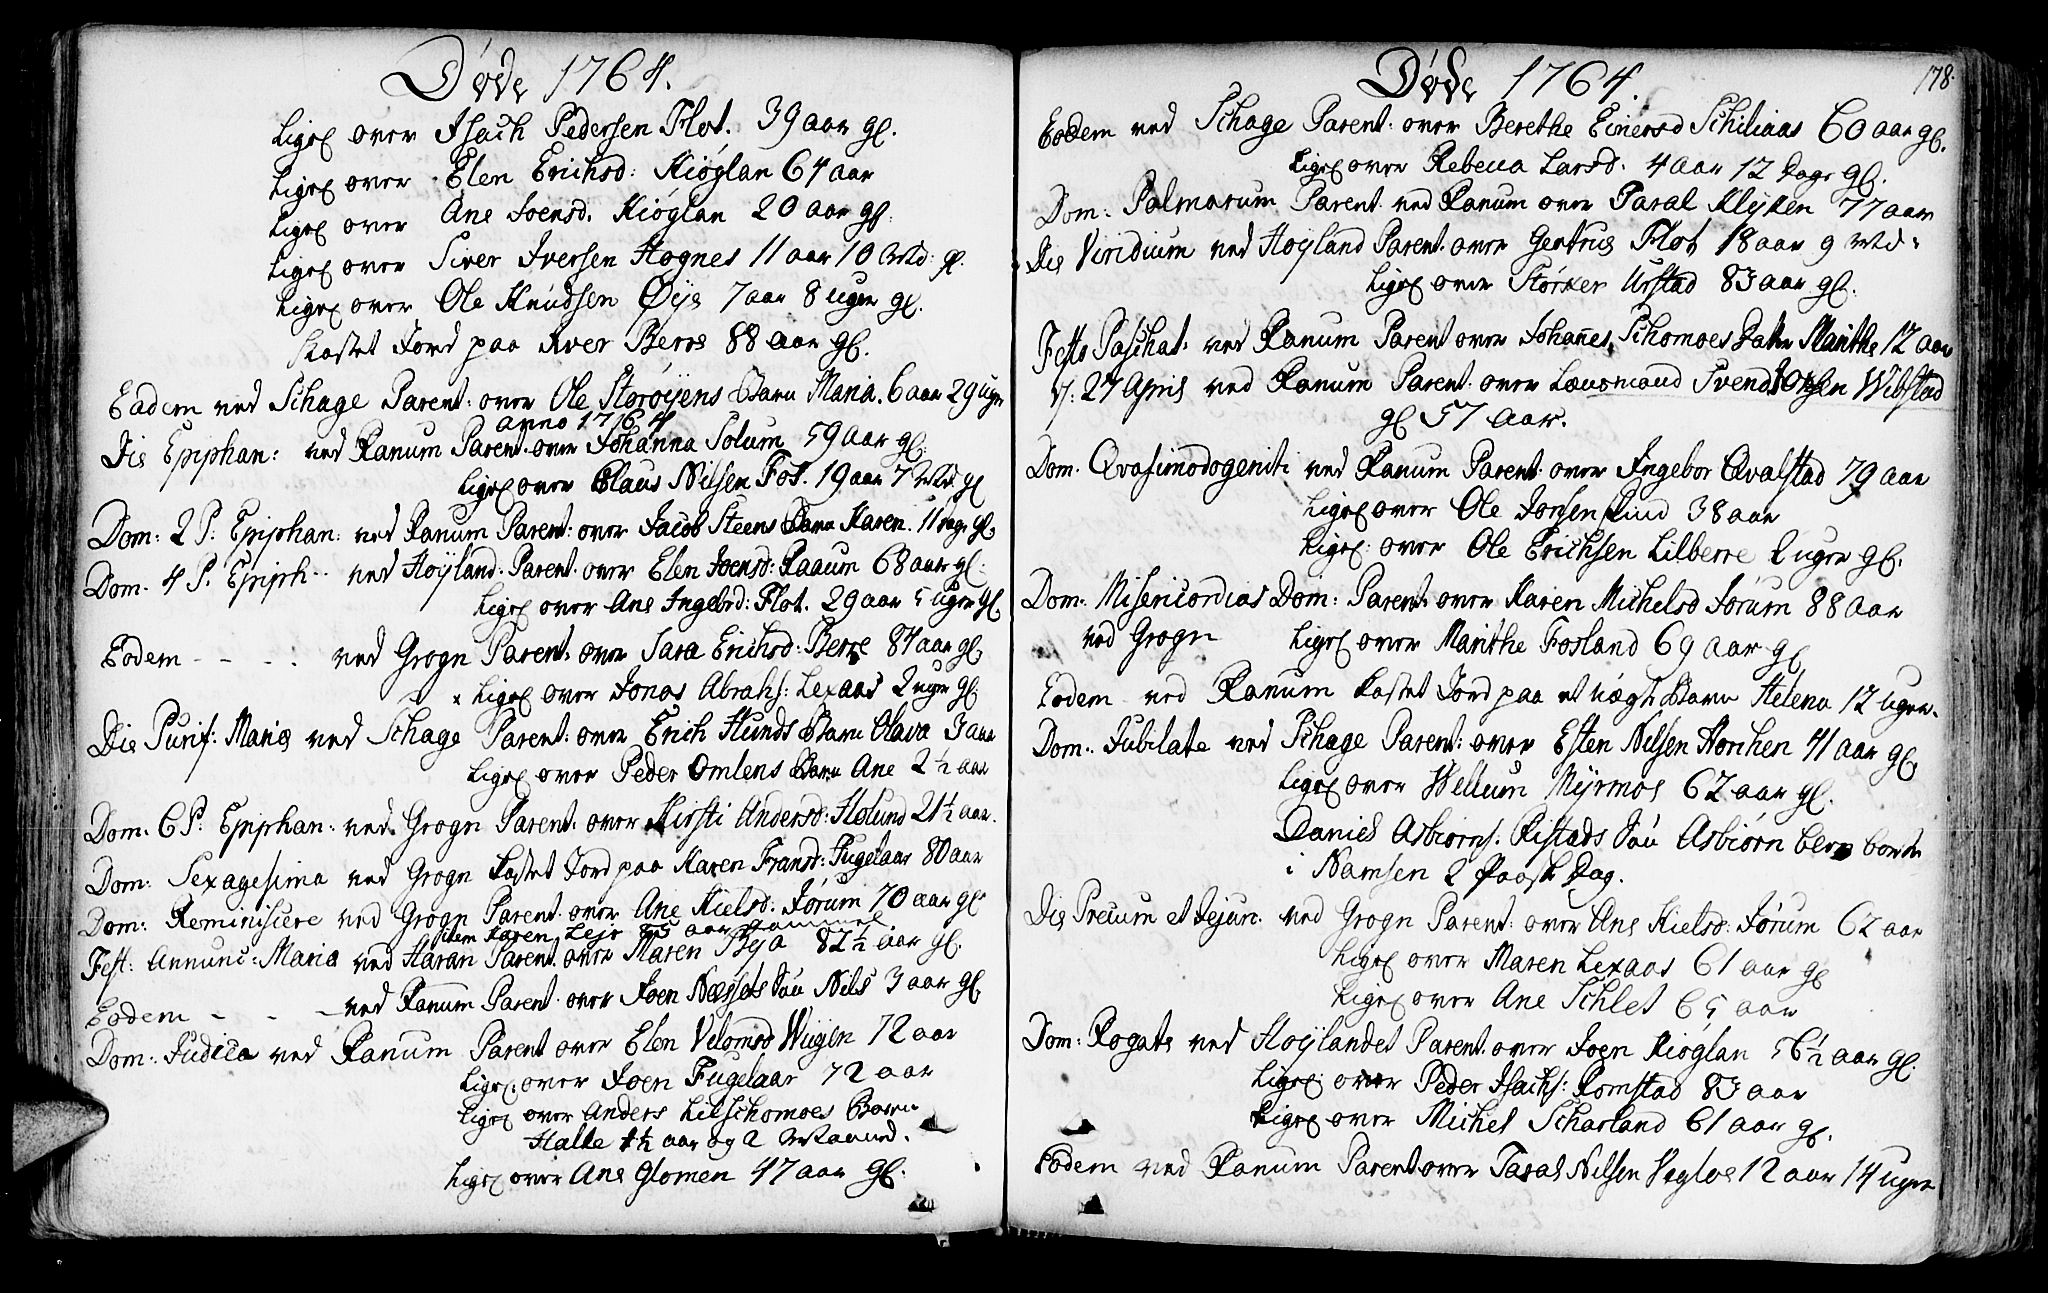 Døde 1764.
Ligeℓ over Isach Pedersen Flot. 39 aar gℓ.
Ligeℓ over Elen Erichsd: Kiøglan 64 aar
Ligeℓ over Ane Joensd. Kiøglan 20 aar gℓ.
Ligeℓ over Siver Iversen Høgnes 11 aar 10 Md: gℓ.
Ligeℓ over Ole Knudsen Øye 7 aar 8 uger gℓ.
Kastet Jord paa Iver Berre 88 aar gℓ.
Eadem ved Schage Parent: over Ole Storøyens Barn Maria. 6 aar 29 uger
anno 1764
Die Epiphan: ved Ranum Parent. over Johanna Solum 59 aar gℓ.
Ligeℓ over Claus Nilsen Fos. 19 aar 7 Md. gℓ
Dom: 2 P: Epiphan: ved Ranum Parent: over Jacob Steens Barn Karen. 11 dage gℓ.
Dom. 4 P. Epiph.. ved Høyland. Parent. over Elen Joensd: Raaum 68 aar gℓ.
Ligeℓ over Ane Ingebrd: Flot. 29 aar 5 uger gℓ.
Eodem - - . . ved Grogn Parent. over Sara Erichsd: Berre 84 aar gℓ.
Ligeℓ over Jonas Abrahs: Lexaas 2 uger gℓ.
Die Purif: Mariæ ved Schage Parent: over Erich Hunds Barn Olava 3 aar
Ligeℓ over Peder Omlens Barn Ane 2½ aar
Dom. 6 P: Epiphan: ved. Grogn Parent. over Kirsti Andersd: Hølund 21½ aar.
Dom: Sexagesima ved Grogn Kastet Jord paa Karen Fransd: Fugelaar 80 aar
Dom: Reminiscere ved Grogn Parent. over Ane Kielsd: Jørum 70 aar gℓ.
item Karen Lejr 85 aar
Fest: Annunc: Maria ved Haran Parent. over Maren Bya 82½ aar gℓ.
Eodem - - - ved Ranum Parent. over Joen Næssets Søn Nils 3 aar gℓ.
Dom: Judica ved Ranum Parent over Elen Velomsd Wiigen 72 aar
Ligeℓ: over Joen Fugelaar 72 aar
Ligeℓ over Anders Litlschomoes Barn
Halle 1½ aar og 2 Maaned.
Ligeℓ over Ane Glømen 47 aar gℓ.
Døde 1764.
178.
Eodem ved Schage Parent: over Berethe Einersd Schiliaas 60 aar gℓ.
Ligeℓ over Rebecca Larsd: 4 aar 12 Dage gℓ.
Dom: Palmarum Parent. ved Ranum over Paral Klyken 77 aar
Die Viridium ved Høyland Parent. over Gertrue Flot 18 aar 9 Md:
Ligeℓ over Størker Urstad 83 aar gℓ.
Festo Paschat: ved Ranum Parent over Johanes Schomoes Datter Marithe 12 aar
d: 27 April ved Ranum Parent. over Lænsmand Svend Olsen Wibstad
gℓ 57 aar.
Dom. Qvasimodogeniti ved Ranum Parent. over Ingebor Qvalstad 79 aar
Ligeℓ over Ole Jonsen Lund 38 aar
Ligeℓ. over Ole Erichsen Lilberre 2 uger gℓ.
Dom. Misericordias Dom: Parent. over Karen Michelsd Jørum 88 aar
ved Grogn Ligeℓ over Marithe Fosland 69 aar gℓ
Eodem ved Ranum Kastet Jord paa et uægte Barn Helena 12 uger.
Dom. Jubilate ved Schage Parent: over Esten Nilsen Horchen 41 aar gℓ.
Ligeℓ over Wellum Myrmoe 62 aar gℓ.
Daniel Asbiørns: Ristads Søn Asbiørn blev borte
i Namsen 2 Paaske Dag.
Die Precum et Jejun. ved Grogn Parent: over Ane Kielsd: Jørum 62 aar
Ligeℓ over Maren Lexaas 61 aar gℓ
Ligeℓ over Ane Schlet 65 aar
Dom: Rogate ved Høylandet Parent. over Joen Kiøglan 56½ aar gℓ.
Ligeℓ. over Peder Isachs: Romstad 83 aar
Ligeℓ over Michel Scharland 61 aar gℓ.
Eodem ved Ranum Parent over Taral Nilsen Veglos 12 aar 14 uger